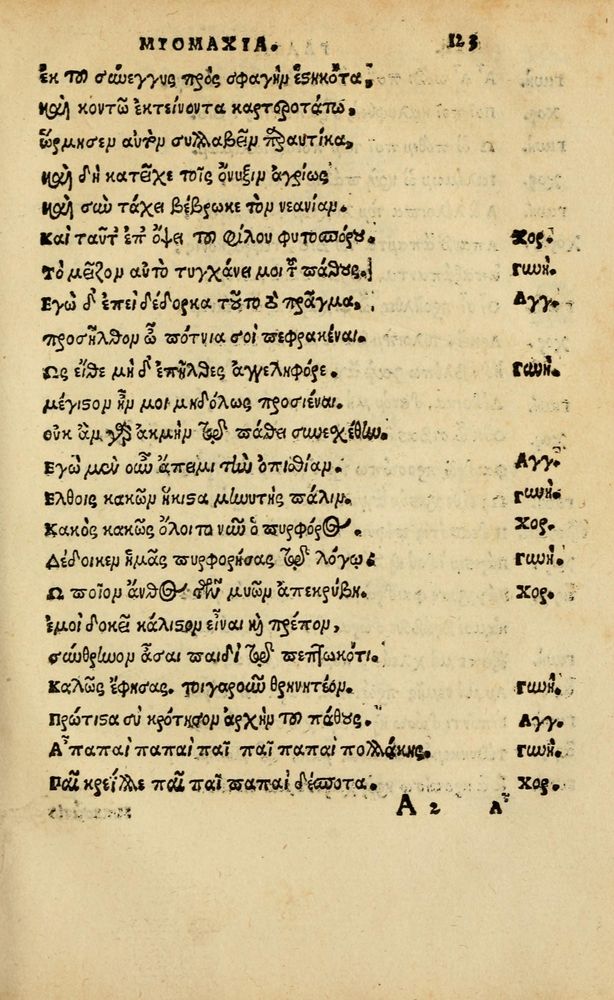 ΜΥΟΜΑΧΙΑ. 123
ἐκ τοῦ σύνεγγυς πρὸς σφαγὴν ἑστηκότα,
καὶ κοντῷ ἐκτείνοντα καρτεροτάτῳ,
ὥρμησεν αὐτὴν συλλαβεῖν παραυτίκα,
καὶ δὴ κατεῖχε τοῖς ὄνυξιν ἀγρίως
καὶ σὺν τάχει βέβρωκε τὸν νεανίαν.
Καὶ ταῦτ' ἐπ' ὄψει τοῦ φίλου φυτοσπόρου. Χορ.
Τὸ μεῖζον αὐτὸ τυγχάνει μοι τοῦ πάθους. γυνή.
Εγὼ δ' ἐπεὶ δέδορκα τοῦτο τὸ πρᾶγμα, Αγγ.
προσῆλθον ὦ πότνια σοὶ πεφρακέναι.
Ως εἴθε μὴ δ' ἐπῆλθες ἀγγεληφόρε. γυνή.
μέγιστον ἦν μοι μηδόλως προσιέναι.
οὐκ ἂν γὰρ ἀκμὴν τῷ πάθει συνεχέθην.
Εγὼ μὲν οὖν ἄπειμι τὴν ὀπισθίαν. Αγγ.
Ελθοις κακῶν ἥκιστα μηνυτὴς πάλιν. γυνή.
Κακὸς κακῶς ὄλοιτο νῦν ὁ πυρφόρος. Χορ.
Δέδοικεν ἡμᾶς πυρφορήσας τῷ λόγῳ. γυνή.
Ω ποῖον ἄνθος τῶν μυῶν ἀπεκρύβη. Χορ.
ἐμοὶ δοκεῖ κάλιστον εἶναι καὶ πρέπον,
σύνθρηνον ᾆσαι παιδὶ τῷ πεπτωκότι.
Καλῶς ἔφησας. τοιγαροῦν θρηνητέον. γυνή.
Πρώτιστα σὺ κρότησον ἀρχὴν τοῦ πάθους. Αγγ.
Α παπαὶ παπαὶ παῖ παῖ παπαὶ πολλάκης. γυνή.
Παῖ κρείλλε παῖ παῖ παπαὶ δέσποτα. Χορ.
Α 2 Α